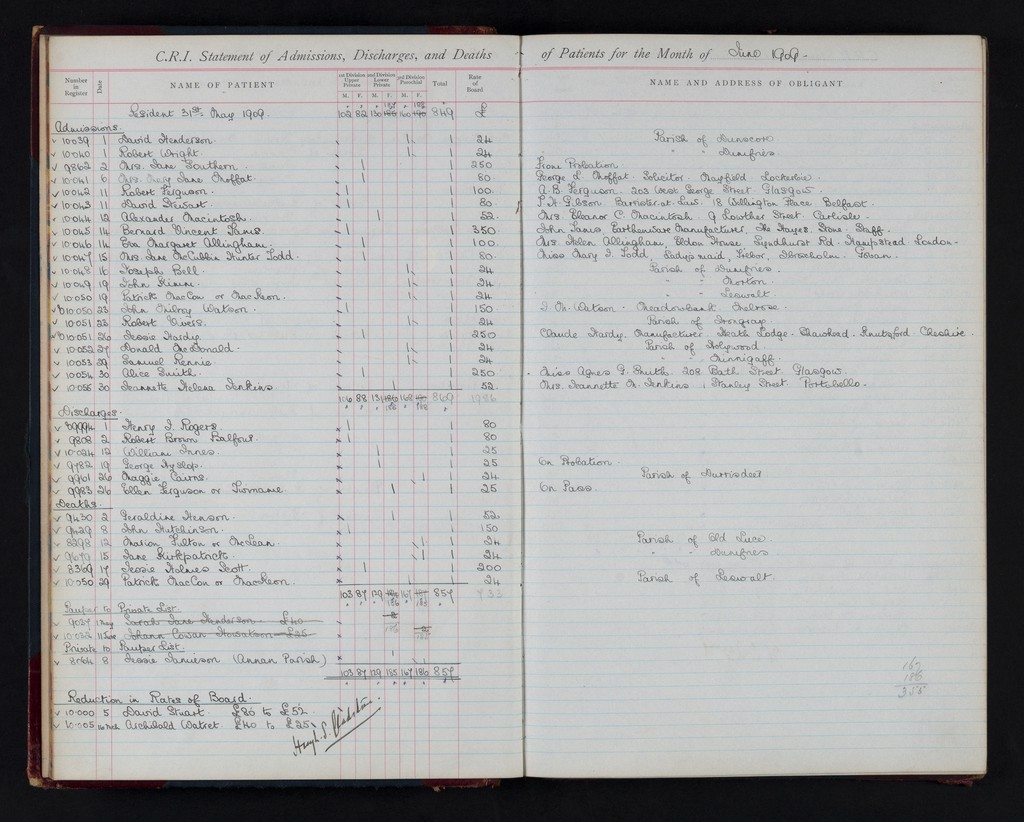 C.R.I. Statement of Admissions, Discharges, and Deaths of Patients for the Month of June 1909.
Number in Register Date NAME OF PATIENT Upper Private Lower Private Parochial Total Rate of Board NAME AND ADDRESS OF OBLIGANT
M. F. M. F. M. F.
Resident 31st May 1909. 102 82 130 849 £
Admissions.
10039 1 David Henderson. 1 1 24 Parish of Dunscore
10040 1 Robert Wright. 1 1 24 " " Dumfries
9862 2 Mrs. Jane Southern. 1 1 250 From Probation.
10041 6 Mrs. Mary Jane Moffat. 1 1 80 George L. Moffat. Solicitor. Mayfield Lockerbie.
10042 11 Robert Ferguson. 1 1 100. A.B. Ferguson. 203 West George Street Glasgow.
10043 11 David Stewart. 1 1 80 Gibson. Barrister at Law. 18 Wellington Place. Belfast.
10044 12 Alexander Macintosh. 1 1 52. Mrs. Eleanor C. Macintosh. 9 Lowther Street. Carlisle.
10045 14 Bernard Vincent James. 1 1 350 John James, Earthenware Manufacturer, The Hayes. Stone. Staff.
10046 14 Eva Margaret Allingham. 1 1 100. Mrs. Helen Allingham, Eldon House Lyndhurst Rd. Hampstead London.
10047 15 Mrs. Jane McCubbin Hunter Todd. 1 1 80. Miss Mary J. Todd, Ladysmaid, Girvan.
10048 16 Joseph Bell. 1 1 24 Parish of Dumfries.
10049 19 John 1 1 24 " " Morton.
10050 19 Patrick MacCon or MacKeon. 1 1 24 " " Leswalt.
10050 23 John Milroy Watson. 1 1 150 J. M. Watson. Meadowbank Melrose.
10051 23 Robert Rivers. 1 1 24 Parish of Irongray
10051 26 Jessie Hardy. 1 1 250 Claude Hardy. Manufacturer Heath Lodge. Knutsford Cheshire.
10052 27 Donald McDonald. 1 1 24 Parish of Holywood.
10053 29 Samuel Rennie. 1 1 24 " " Minnigaff.
10054 30 Alice Smith. 1 1 250 Miss Agnes G. Smith. 208 Bath Street. Glasgow.
10055 30 Jeannette Helena Jenkins. 1 1 52. Mrs. Jeannette M. Jenkins. 1 Stanley Street. Portobello.
106 88 131 186 168 869 1986
188
Discharges.
1 Henry J. Rogers. 1 1 80
9808 2 Robert Brown Balfour. 1 1 80
10024 12 William Innes. 1 1 25
9782 19 George Hyslop. 1 1 25 On Probation.
9961 26 Maggie Cairns. 1 1 24 Parish of Durrisdeer
9983 26 Ellen Ferguson or 1 1 25 On Pass.
Deaths.
9430 2 Geraldine Henson. 1 1 52
9429 8 John Hutchinson. 1 1 150
8298 12 Marion Fulton or McLean. 1 1 24 Parish of Old Luce.
9679 15 Jane Kirkpatrick. 1 1 24 " " Dumfries
8369 17 Jessie Holmes Scott. 1 1 200
10050 29 Patrick MacCon or MacKeon. 1 1 24 Parish of Leswalt
103 87 129 167 857 933
186 185
Pauper to Private List.
9037 1 May Sarah Jane Henderson. £40
10032 11 June Johann Cowan Howatson £25
Private to Pauper List.
8064 8 Jessie Jamieson (Annan Parish) 1 1
103 87 129 185 167 186 857
167
186
353
Reduction in Rates of Board.
10000 5 David Stuart. £80 to £52
10005 Archibald Watret. £40 to £25
Hugh S. Gladstone.